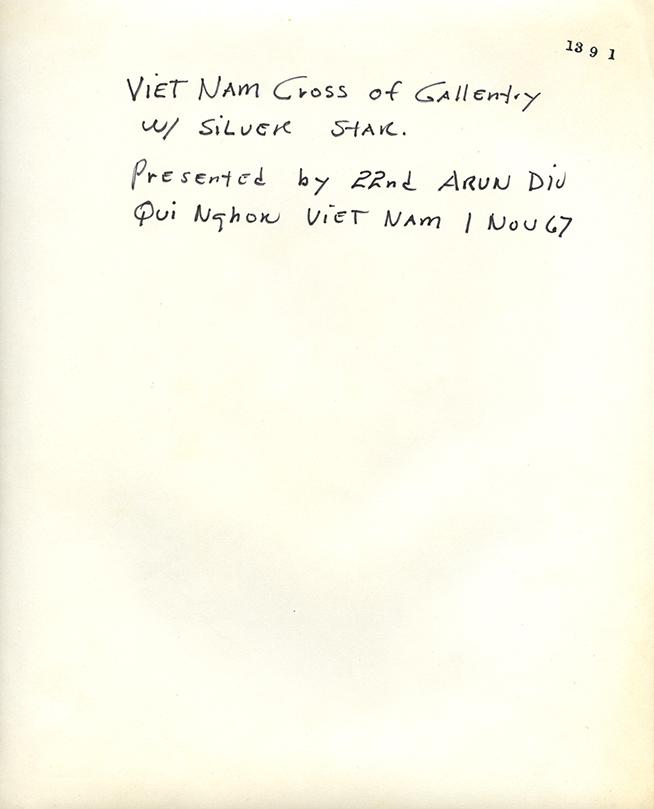 1391
VIET NAM Cross of GAllentry
w/ SILVER STAR.
Presented by 22nd ARVN DIV
Qui Nghon VIET NAM 1 NOV 67